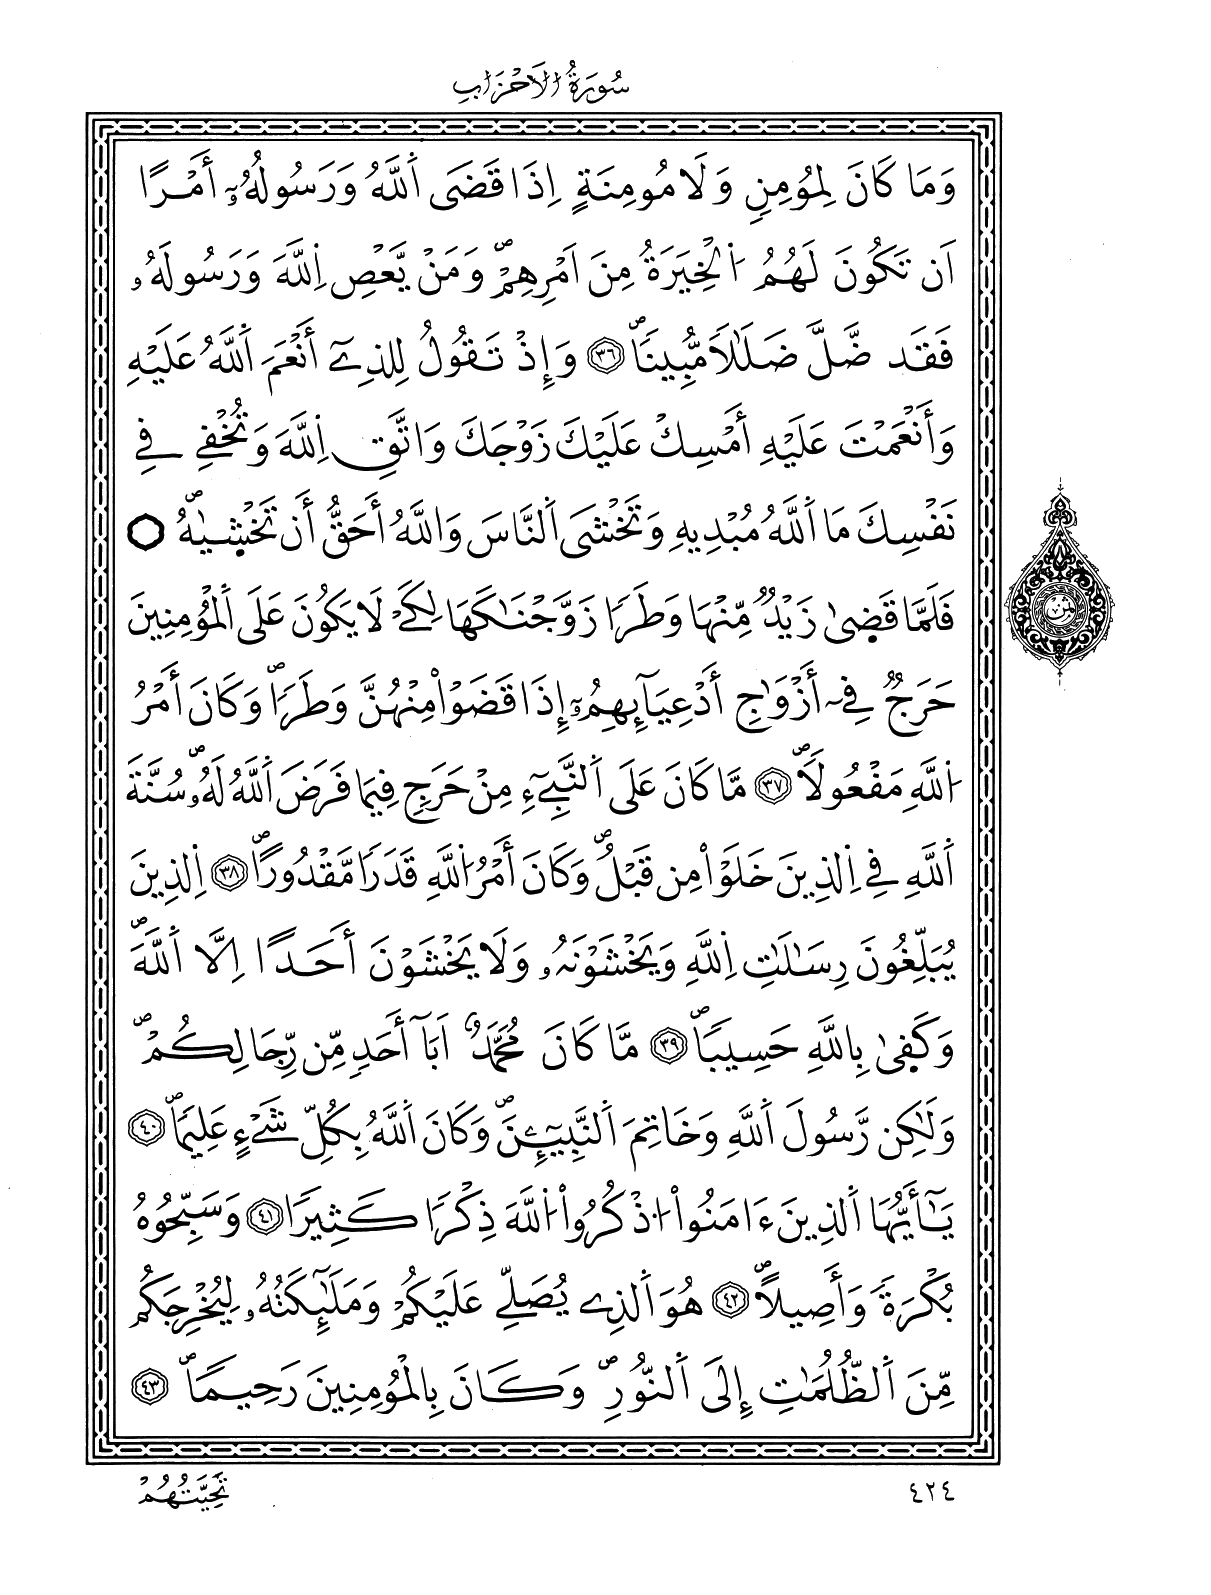 سُورَةُ الَاحْزَابِ
وَمَا كَانَ لِمُومِنٖ وَلَا مُومِنَةٍ اِذَا قَضَى اَ۬للَّهُ وَرَسُولُهُۥٓ أَمْرًا
اَن تَكُونَ لَهُمُ اُ۬لْخِيَرَةُ مِنَ اَمْرِهِمْۖ وَمَنْ يَّعْصِ اِ۬للَّهَ وَرَسُولَهُۥ
فَقَد ضَّلَّ ضَلَٰلاٗ مُّبِيناٗۖ ٣٦ وَإِذْ تَقُولُ لِلذِےٓ أَنْعَمَ اَ۬للَّهُ عَلَيْهِ
وَأَنْعَمْتَ عَلَيْهِ أَمْسِكْ عَلَيْكَ زَوْجَكَ وَاتَّقِ اِ۬للَّهَ وَتُخْفِے فِے
نَفْسِكَ مَا اَ۬للَّهُ مُبْدِيهِ وَتَخْشَى اَ۬لنَّاسَ وَاللَّهُ أَحَقُّ أَن تَخْشٜيٰهُۖ
فَلَمَّا قَضٜىٰ زَيْدٞ مِّنْهَا وَطَراٗ زَوَّجْنَٰكَهَا لِكَےْ لَا يَكُونَ عَلَى اَ۬لْمُومِنِينَ
حَرَجٞ فِےٓ أَزْوَٰجِ أَدْعِيَآئِهِمُۥٓ إِذَا قَضَوْاْ مِنْهُنَّ وَطَراٗۖ وَكَانَ أَمْرُ
اُ۬للَّهِ مَفْعُولاٗۖ ٣٧ مَّا كَانَ عَلَى اَ۬لنَّبِےٓءِ مِنْ حَرَجٖ فِيمَا فَرَضَ اَ۬للَّهُ لَهُۥۖ سُنَّةَ
اَ۬للَّهِ فِے اِ۬لذِينَ خَلَوْاْ مِن قَبْلُۖ وَكَانَ أَمْرُ اُ۬للَّهِ قَدَراٗ مَّقْدُوراًۖ ٣٨ اِ۬لذِينَ
يُبَلِّغُونَ رِسَٰلَٰتِ اِ۬للَّهِ وَيَخْشَوْنَهُۥ وَلَا يَخْشَوْنَ أَحَداً اِلَّا اَ۬للَّهَۖ
وَكَفٜىٰ بِاللَّهِ حَسِيباٗۖ ٣٩ مَّا كَانَ مُحَمَّدٌ اَبَآ أَحَدٖ مِّن رِّجَالِكُمْۖ
وَلَٰكِن رَّسُولَ اَ۬للَّهِ وَخَاتِمَ اَ۬لنَّبِيٓـِٕينَۖ وَكَانَ اَ۬للَّهُ بِكُلِّ شَےْءٍ عَلِيماٗۖ ٤٠
يَٰٓأَيُّهَا اَ۬لذِينَ ءَامَنُواْ اُ۟ذْكُرُواْ اُ۬للَّهَ ذِكْراٗ كَثِيراٗ ٤١ وَسَبِّحُوهُ
بُكْرَةٗ وَأَصِيلاًۖ ٤٢ هُوَ اَ۬لذِے يُصَلِّے عَلَيْكُمْ وَمَلَٰٓئِكَتُهُۥ لِيُخْرِجَكُم
مِّنَ اَ۬لظُّلُمَٰتِ إِلَى اَ۬لنُّورِۖ وَكَانَ بِالْمُومِنِينَ رَحِيماٗۖ ٤٣
٤٢٤
تَحِيَّتُهُمْ